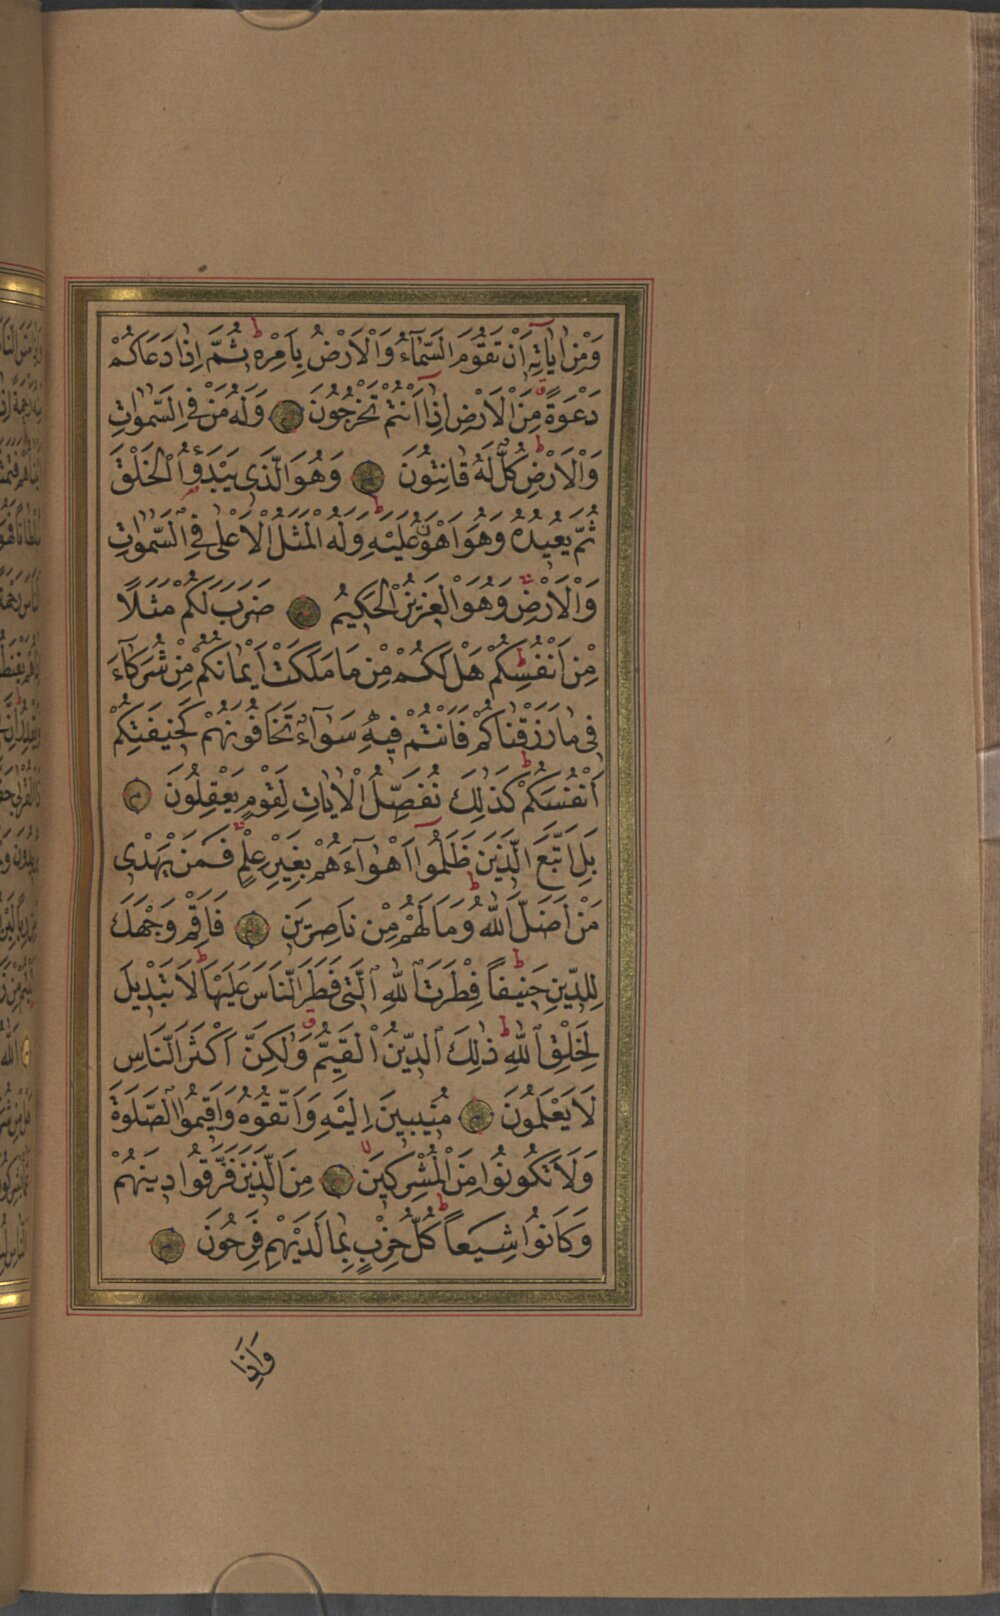 وَمِنْ اٰيَاتِهٖٓ اَنْ تَقُومَ السَّمَآءُ وَالْاَرْضُ بِاَمْرِهٖ ط ثُمَّ اِذَا دَعَاكُمْ
دَعْوَةً ق مِنَ الْاَرْضِ اِذَٓا اَنْتُمْ تَخْرُجُونَ وَلَهُ مَنْ فِي السَّمٰوَاتِ
وَالْاَرْضِ ط كُلٌّ لَهُ قَانِتُونَ وَهُوَ الَّذٖي يَبْدَؤُا الْخَلْقَ
ثُمَّ يُعٖيدُهُ وَهُوَ اَهْوَنُ عَلَيْهِ ط وَلَهُ الْمَثَلُ الْاَعْلٰى فِي السَّمٰوَاتِ
وَالْاَرْضِ وَهُوَ الْعَزٖيزُ الْحَكٖيمُ ضَرَبَ لَكُمْ مَثَلًا
مِنْ اَنْفُسِكُمْ ط هَلْ لَكُمْ مِنْ مَا مَلَكَتْ اَيْمَانُكُمْ مِنْ شُرَكَآءَ
فٖي مَا رَزَقْنَاكُمْ فَاَنْتُمْ فٖيهِ سَوَآءٌ تَخَافُونَهُمْ كَخٖيفَتِكُمْ
اَنْفُسَكُمْ ط كَذٰلِكَ نُفَصِّلُ الْاٰيَاتِ لِقَوْمٍ يَعْقِلُونَ
بَلِ اتَّبَعَ الَّذٖينَ ظَلَمُٓوا اَهْوَآءَهُمْ بِغَيْرِ عِلْمٍ فَمَنْ يَهْدٖي
مَنْ اَضَلَّ اللّٰهُ ط وَمَا لَهُمْ مِنْ نَاصِرٖينَ فَاَقِمْ وَجْهَكَ
لِلدّٖينِ حَنٖيفًا ط فِطْرَتَ اللّٰهِ الَّتٖي فَطَرَ النَّاسَ عَلَيْهَا ط لَا تَبْدٖيلَ
لِخَلْقِ اللّٰهِ ط ذٰلِكَ الدّٖينُ الْقَيِّمُ ق وَلٰكِنَّ اَكْثَرَ النَّاسِ
لَا يَعْلَمُونَ مُنٖيبٖينَ اِلَيْهِ وَاتَّقُوهُ وَاَقٖيمُوا الصَّلٰوةَ
وَلَا تَكُونُوا مِنَ الْمُشْرِكٖينَ لا مِنَ الَّذٖينَ فَرَّقُوا دٖينَهُمْ
وَكَانُوا شِيَعًا ط كُلُّ حِزْبٍ بِمَا لَدَيْهِمْ فَرِحُونَ
وَاِذَا